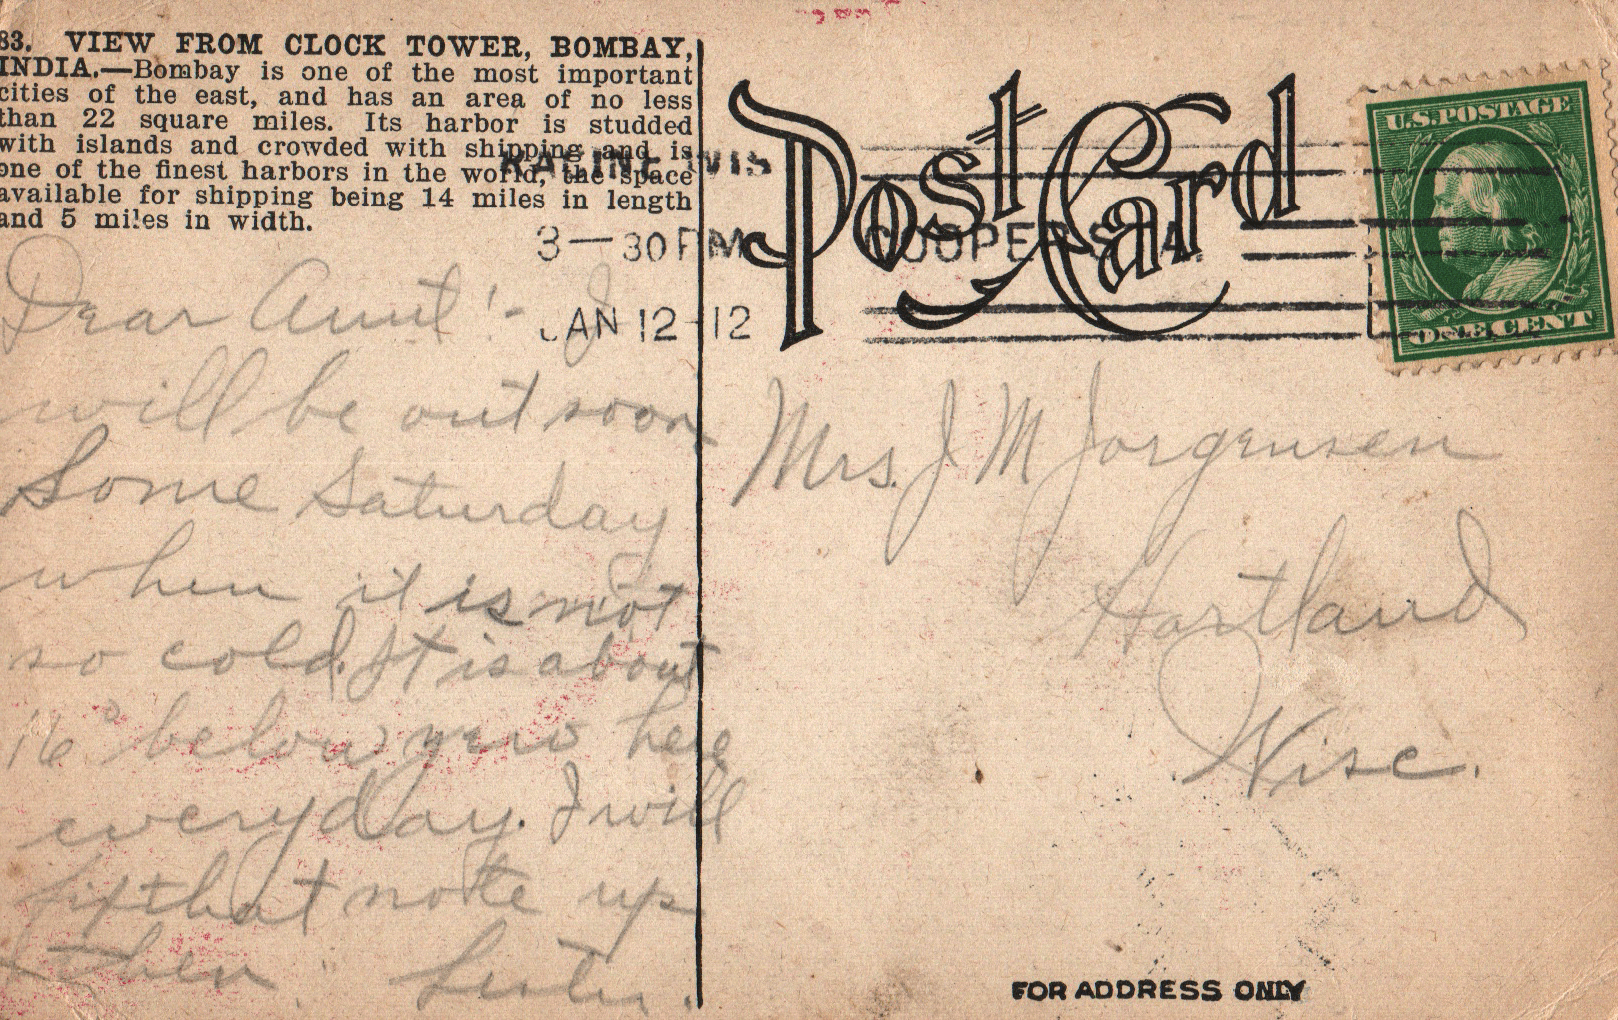 83. VIEW FROM CLOCK TOWER, BOMBAY,
INDIA.—Bombay is one of the most important
cities of the east, and has an area of no less
than 22 square miles. Its harbor is studded
with islands and crowded with shipping and is
one of the finest harbors in the world, the space
available for shipping being 14 miles in length
and 5 miles in width.
Post Card
RACINE WIS
3—30 PM
JAN 12-12
U.S. POSTAGE
ONE CENT
Dear Aunt:- I
will be out soon
Some Saturday
when it is not
so cold. It is about
16° below zero here
everyday. I will
fix that note up
then.
Mrs. J M Jorgensen
Hartland
Wisc.
FOR ADDRESS ONLY